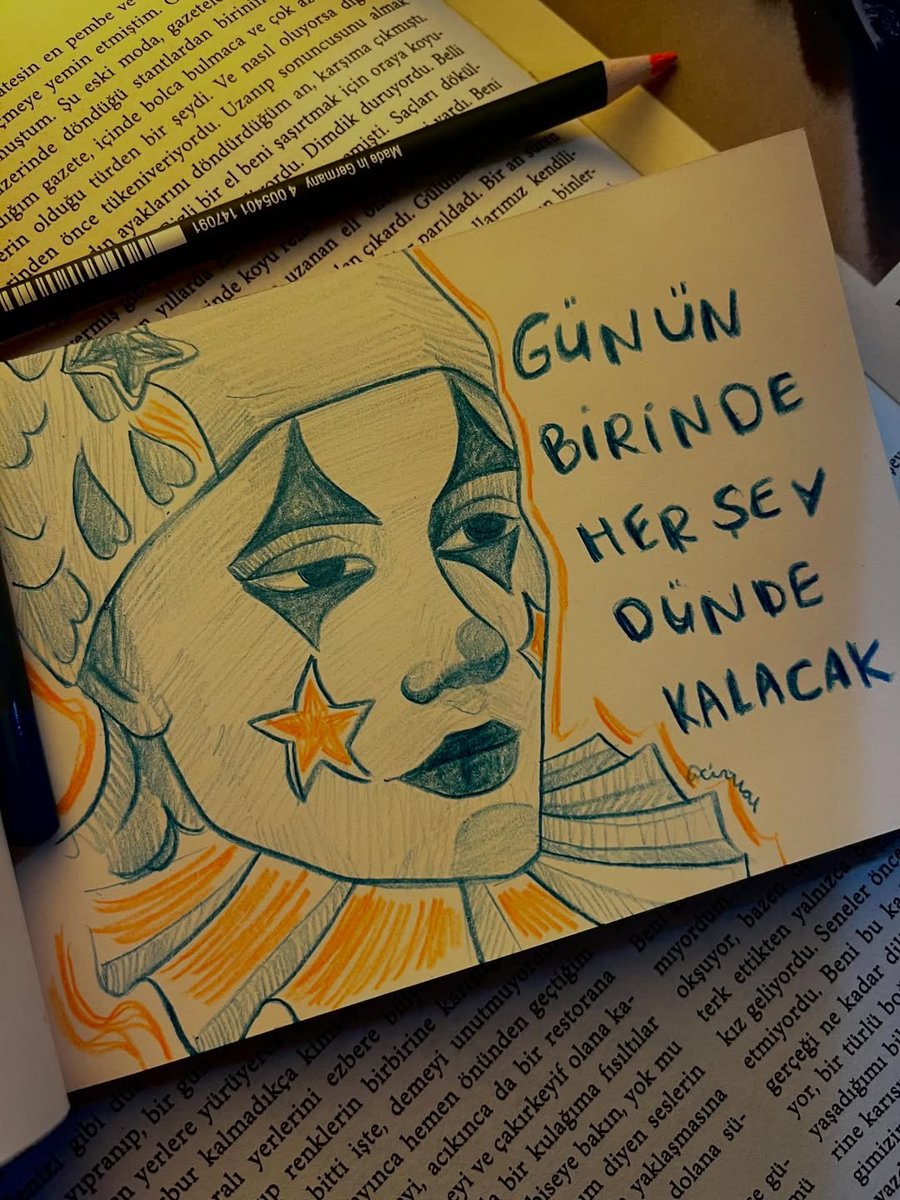 atesin en pembe ve
meye yemin etmiştim. Ç
muştum. Şu eski moda, gazetele
üzerinde döndüğü stantlardan birinin
dığım gazete, içinde bolca bulmaca ve çok az
erin olduğu türden bir şeydi. Ve nasıl oluyorsa
rinden önce tükeniveriyordu. Uzanıp sonuncusunu almak
ayaklarını döndürdüğüm an, karşıma çıkmıştı.
bir el beni şaşırtmak için oraya koyu-
Dimdik duruyordu. Belli
Saçları dökül-
vardı. Beni
uzanan eli
çıkardı.
parıldadı. Bir an
larımız kendili-
binler-
Made in Germany 4 005401 147091
GÜNÜN
BİRİNDE
HER ŞEY
DÜNDE
KALACAK
mıyordum
okşuyor, bazen
terk ettikten yalnızca
kız geliyordu. Seneler önce
etmiyordu. Beni bu ka
gerçeği ne kadar
yor, bir türlü
yaşadığımı
rine karış
gimizin
gibi
vıpranıp, bir
yerlere yürüyer
bur kalmadıkça
ralı yerlerini ezbere
renklerin birbirine
bitti işte, demeyi unutmuyor
yınca hemen önünden geçtiğim
acıkınca da bir restorana
ve çakırkeyif olana ka-
bir kulağıma fısıltılar
biseye bakın, yok mu
diyen seslerin
yaklaşmasına
dolana sü-